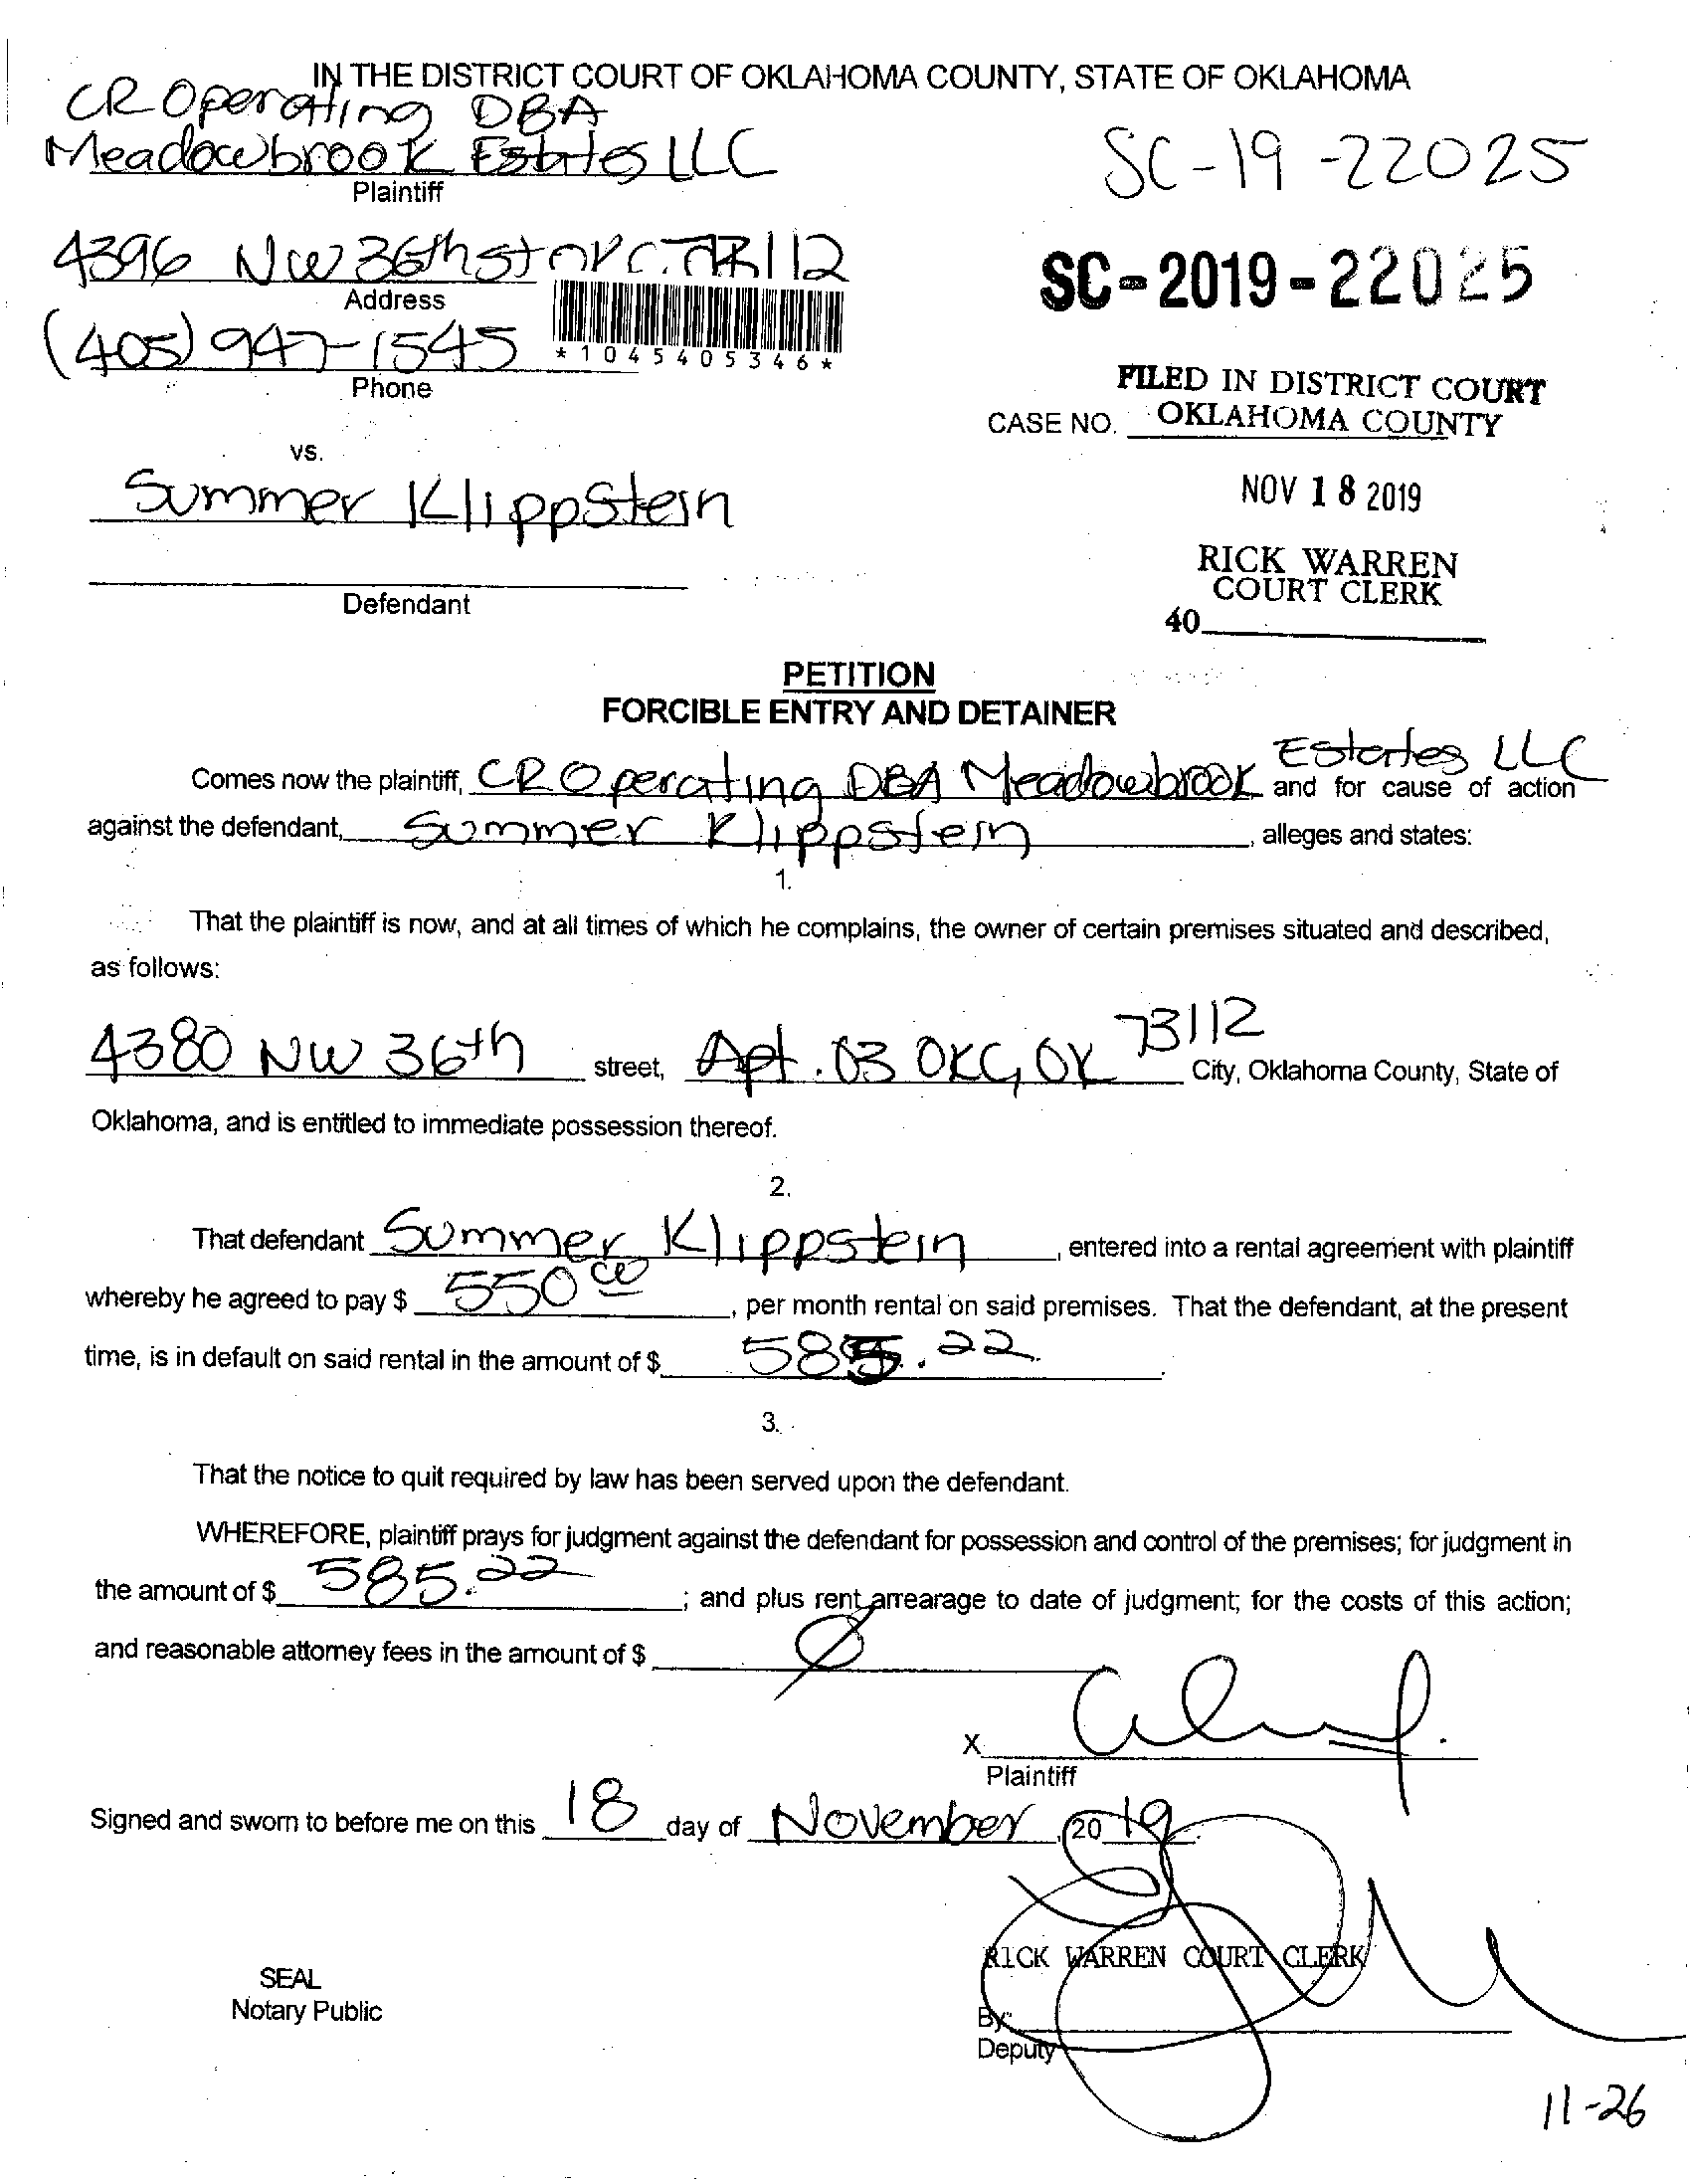 IN THE DISTRICT COURT OF OKLAHOMA COUNTY, STATE OF OKLAHOMA
CR Operating DBA
Meadowbrook Estates LLC
Plaintiff
SC-19-22025
4396 NW 36th st OKC. 73112
Address
SC-2019-22025
(405) 947-1545
*1045405346*
Phone
FILED IN DISTRICT COURT
CASE NO. OKLAHOMA COUNTY
vs.
Summer Klippstein
NOV 18 2019
RICK WARREN
COURT CLERK
Defendant
40
PETITION
FORCIBLE ENTRY AND DETAINER
Estates LLC
Comes now the plaintiff, CR Operating DBA Meadowbrook and for cause of action
against the defendant, Summer Klippstein, alleges and states:
1.
That the plaintiff is now, and at all times of which he complains, the owner of certain premises situated and described,
as follows:
4380 NW 36th street, Apt. 03 OKC, OK 73112 City, Oklahoma County, State of
Oklahoma, and is entitled to immediate possession thereof.
2.
That defendant Summer Klippstein, entered into a rental agreement with plaintiff
whereby he agreed to pay $ 550 00, per month rental on said premises. That the defendant, at the present
time, is in default on said rental in the amount of $ 585.22.
3.
That the notice to quit required by law has been served upon the defendant.
WHEREFORE, plaintiff prays for judgment against the defendant for possession and control of the premises; for judgment in
the amount of $ 585.22; and plus rent arrearage to date of judgment; for the costs of this action;
and reasonable attorney fees in the amount of $ Ø
X
Plaintiff
Signed and sworn to before me on this 18 day of November, 2019.
RICK WARREN COURT CLERK
SEAL
Notary Public
By:
Deputy
11-26